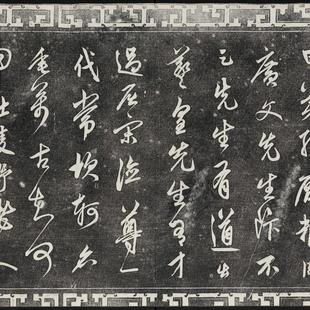 甲第紛紛厭粱肉
廣文先生飯不
足先生有道出
羲皇先生有才
過屈宋德尊一
代常坎軻名
垂萬古知何
用杜陵野客人